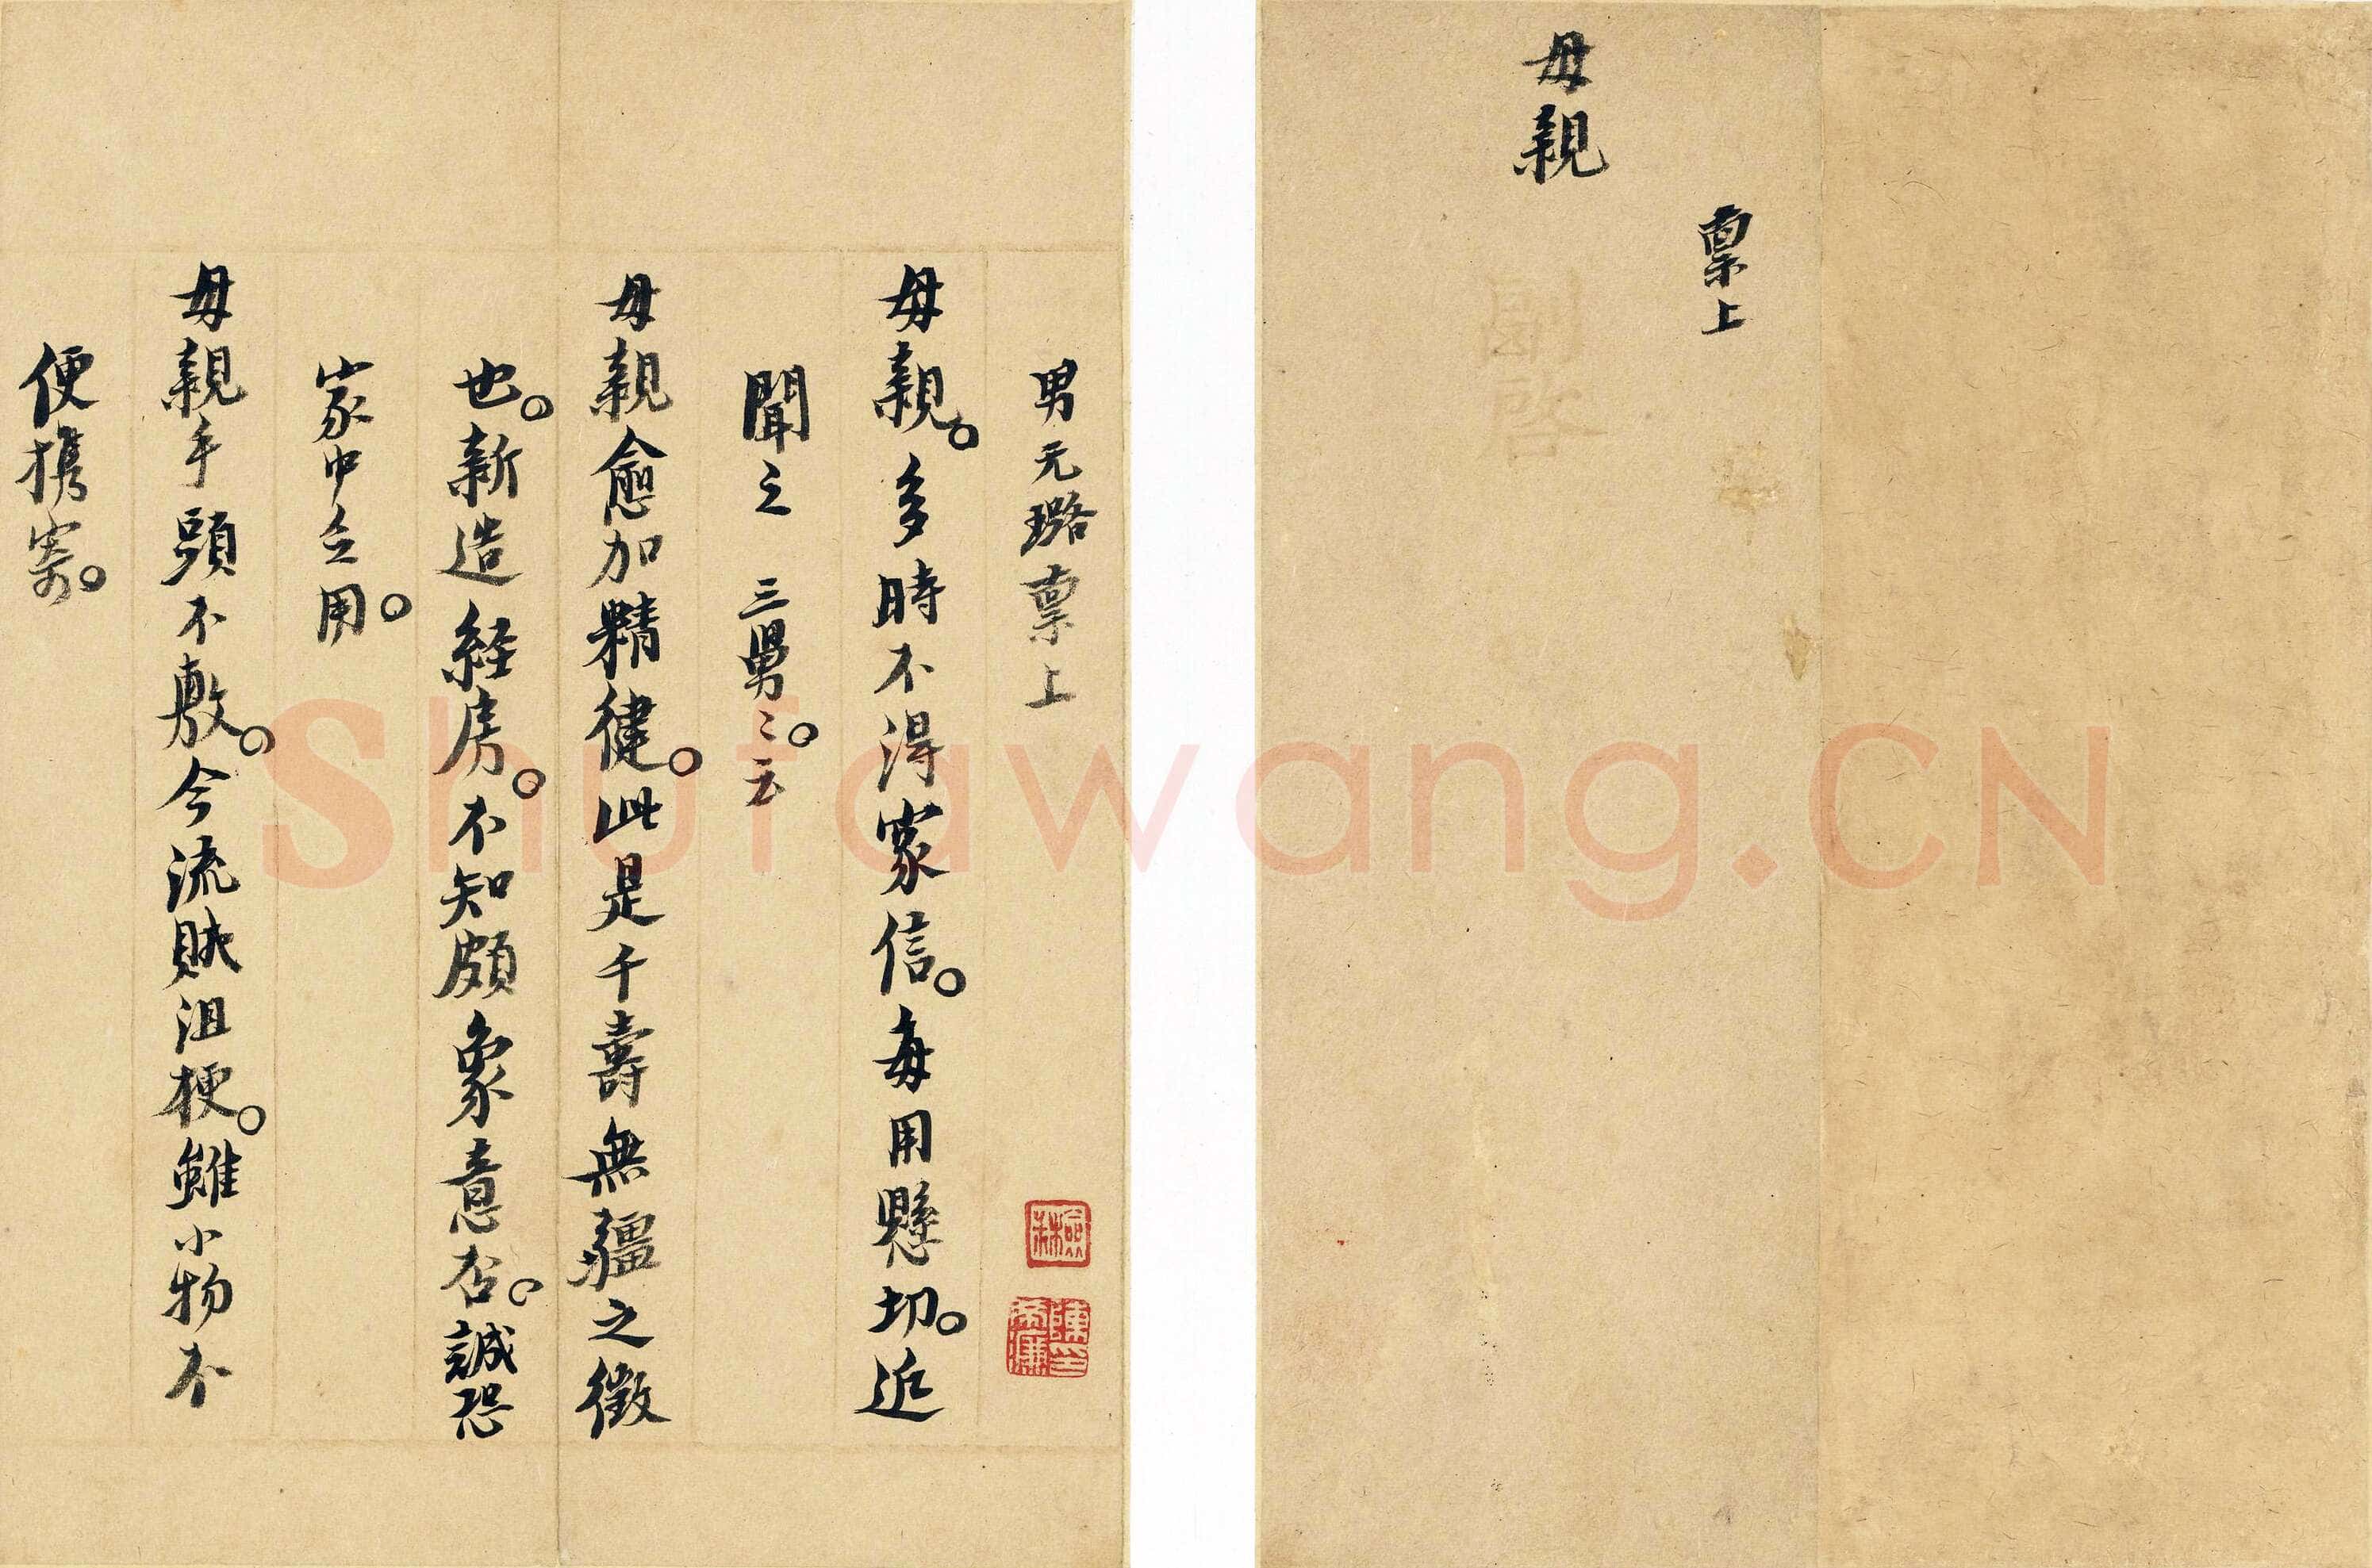 稟上
母親
男元璐稟上
母親。多時不得家信。每用懸切。近
聞之 三舅〻。云
母親愈加精健。此是千壽無疆之徵
也。新造経房。不知頗象意否。誠恐
家中乏用。
母親手頭不敷。今流賊沮梗。雖小物不
便携寄。
Shufawang.CN